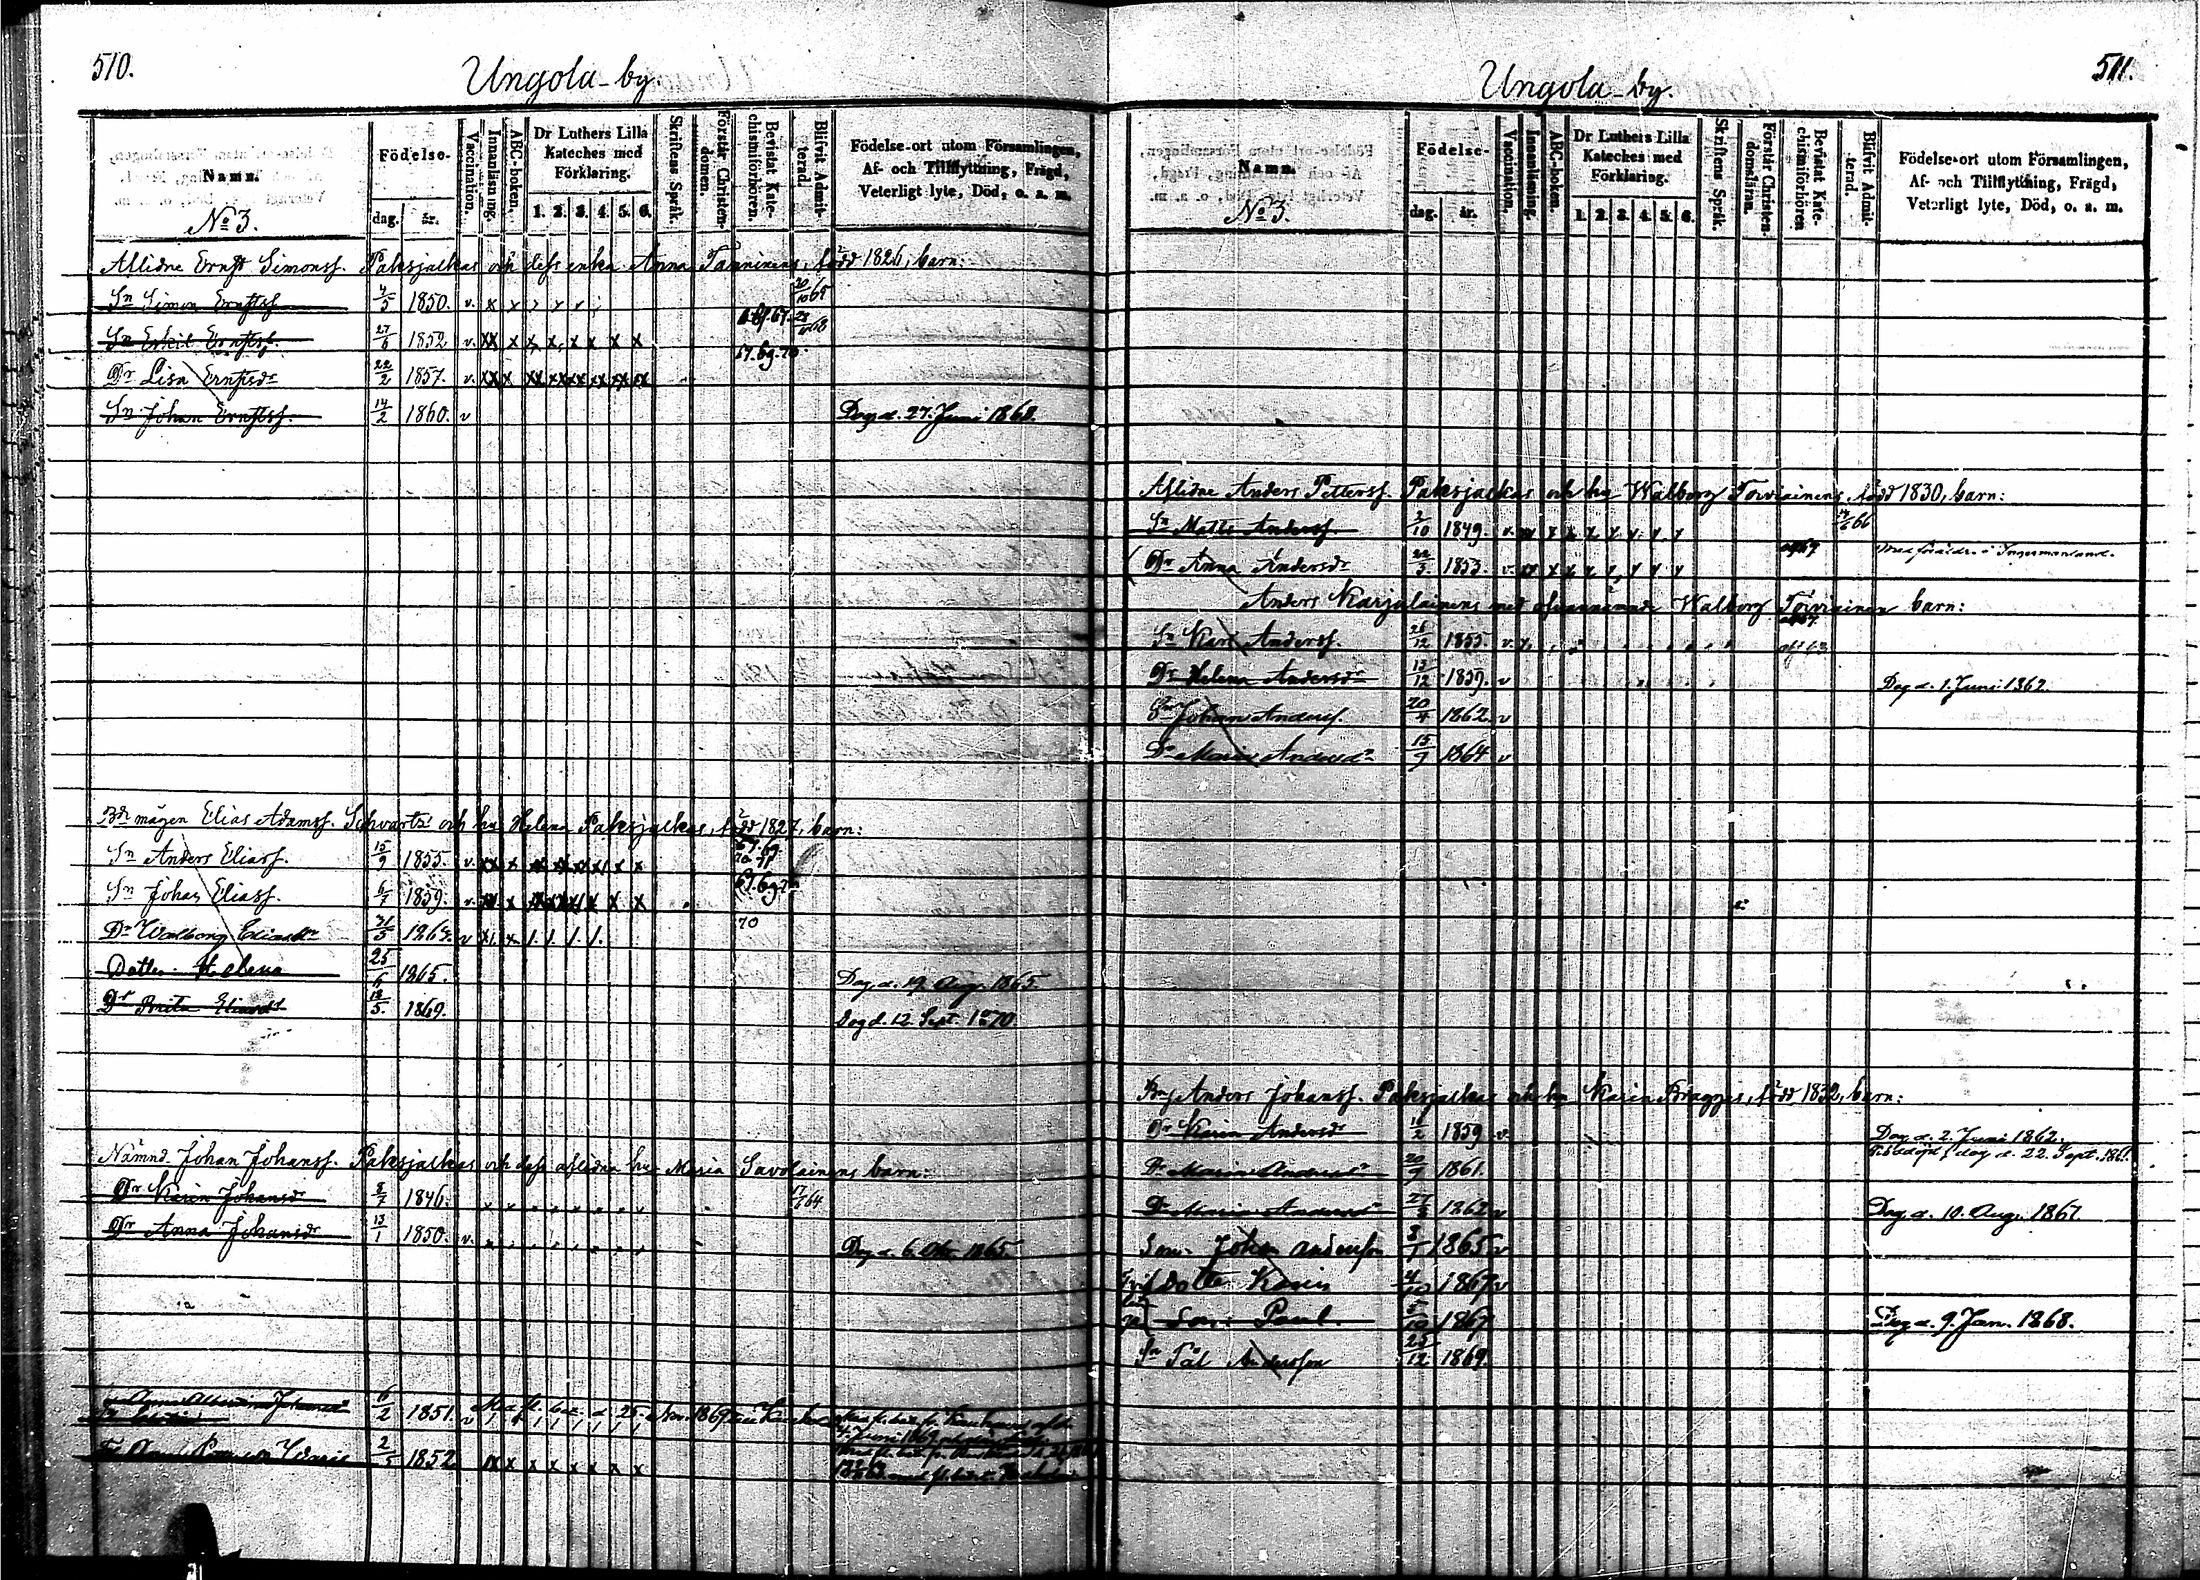 510.
Ungola-by.
Namn.
No 3.
Födelse-
dag. år.
Vaccination.
Innanläsning.
ABC-boken.
Dr Luthers Lilla Kateches med Förklaring.
1. 2. 3. 4. 5. 6.
Skriftens Språk.
Förstår Christendomen.
Bevistat Katechismiförhören.
Blifvit Admitterad.
Födelse-ort utom Församlingen,
Af- och Tillflyttning, Frägd,
Veterligt lyte, Död, o. a. m.
Aflidne Ernst Simonss. Paksjalkas och dess enka Anna Tanninens, född 1826, barn:
Sn Simon Ernstss. 4/5 1850. v. 20/10 65
Sn Eskil Ernstss. 27/6 1852 v.
Dr Lisa Ernstsdr 22/2 1857. v. 67.69.70
Sn Johan Ernstss. 14/2 1860. v Dog d. 27. Juni 1862.
Bdr mågen Elias Adamss. Schvarts och hu Helena Paksjalkas, född 1827, barn:
Sn Anders Eliass. 15/9 1855. v. 67.69 70.71
Sn Johan Eliass. 6/7 1859. v. 67.69.70
Dr Walborg Eliasdr 31/5 1862. v 70
Dotter Helena 25/6 1865. Dog d. 19 Aug. 1865.
Dr Brita Eliasdr 18/5 1869. Dog d. 12. Sept. 1870.
Nämnd. Johan Johanss. Paksjalkas och dess aflidna hu Maria Savolainens barn:
Dr Karin Johansdr 8/7 1846. 64
Dr Anna Johansdr 13/1 1850. v. Dog d. 6. Okt. 1865.
6/2 1851. v
2/5 1852
511.
Ungola-by.
Namn.
No 3.
Födelse-
dag. år.
Vaccination.
Innanläsning.
ABC-boken.
Dr Luthers Lilla Kateches med Förklaring.
1. 2. 3. 4. 5. 6.
Skriftens Språk.
Förstår Christendomsläran.
Bevistat Katechismiförhören
Blifvit Admitterad.
Födelse-ort utom Församlingen,
Af- och Tillflyttning, Frägd,
Veterligt lyte, Död, o. a. m.
Aflidne Anders Petterss. Paksjalkas och hu Walborg Torviainens, född 1830, barn:
Sn Matts Anderss. 2/10 1849. v. 66
Dr Anna Andersdr 22/3 1853. v. med föräldr. i Ingermanland.
Anders Karjalainens med ofvannämnde Walborg Torviainen barn:
Sn Karl Anderss. 26/12 1855. v.
Dr Helena Andersdr 13/12 1859. v Dog d. 1. Juni 1862.
Sn Johan Anderss. 20/4 1862. v
Dr Maria Andersdr 15/9 1864 v
Anders Johanss. Paksjalkas och hu Karin Bragges, född 1832, barn:
Dr Karin Andersdr 11/2 1859 v. Dog d. 2. Juni 1862.
Dr Maria Andersdr 20/9 1861. dog d. 22. Sept. 1861.
Dr Maria Andersdr 1862. v Dog d. 10. Aug. 1867.
Son Johan Andersson 1865. v
dotter Karin 4/10 1867. v
Son Paul. 5/10 1867 Dog d. 9. Jan. 1868.
Sn Pål Andersson 25/12 1869.